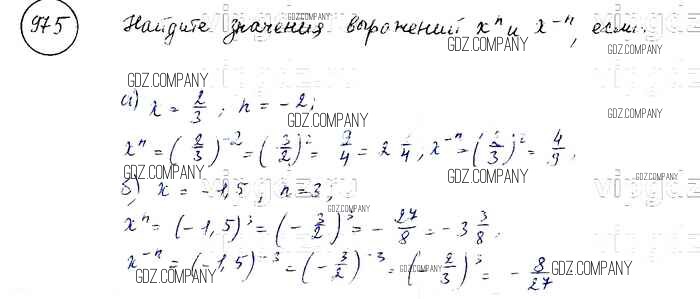 975 Найдите значения выражений xⁿ и x⁻ⁿ, если:
GDZ.COMPANY
GDZ.COMPANY
GDZ.COMPANY
а) x = 2/3; n = -2;
GDZ.COMPANY
GDZ.COMPANY
xⁿ = (2/3)⁻² = (3/2)² = 9/4 = 2 1/4, x⁻ⁿ = (2/3)² = 4/9,
GDZ.COMPANY
GDZ.COMPANY
б) x = -1,5, n = 3,
GDZ.COMPANY
xⁿ = (-1,5)³ = (-3/2)³ = -27/8 = -3 3/8,
GDZ.COMPANY
x⁻ⁿ = (-1,5)⁻³ = (-3/2)⁻³ = (-2/3)³ = -8/27
GDZ.COMPANY
GDZ.COMPANY
GDZ.COMPANY